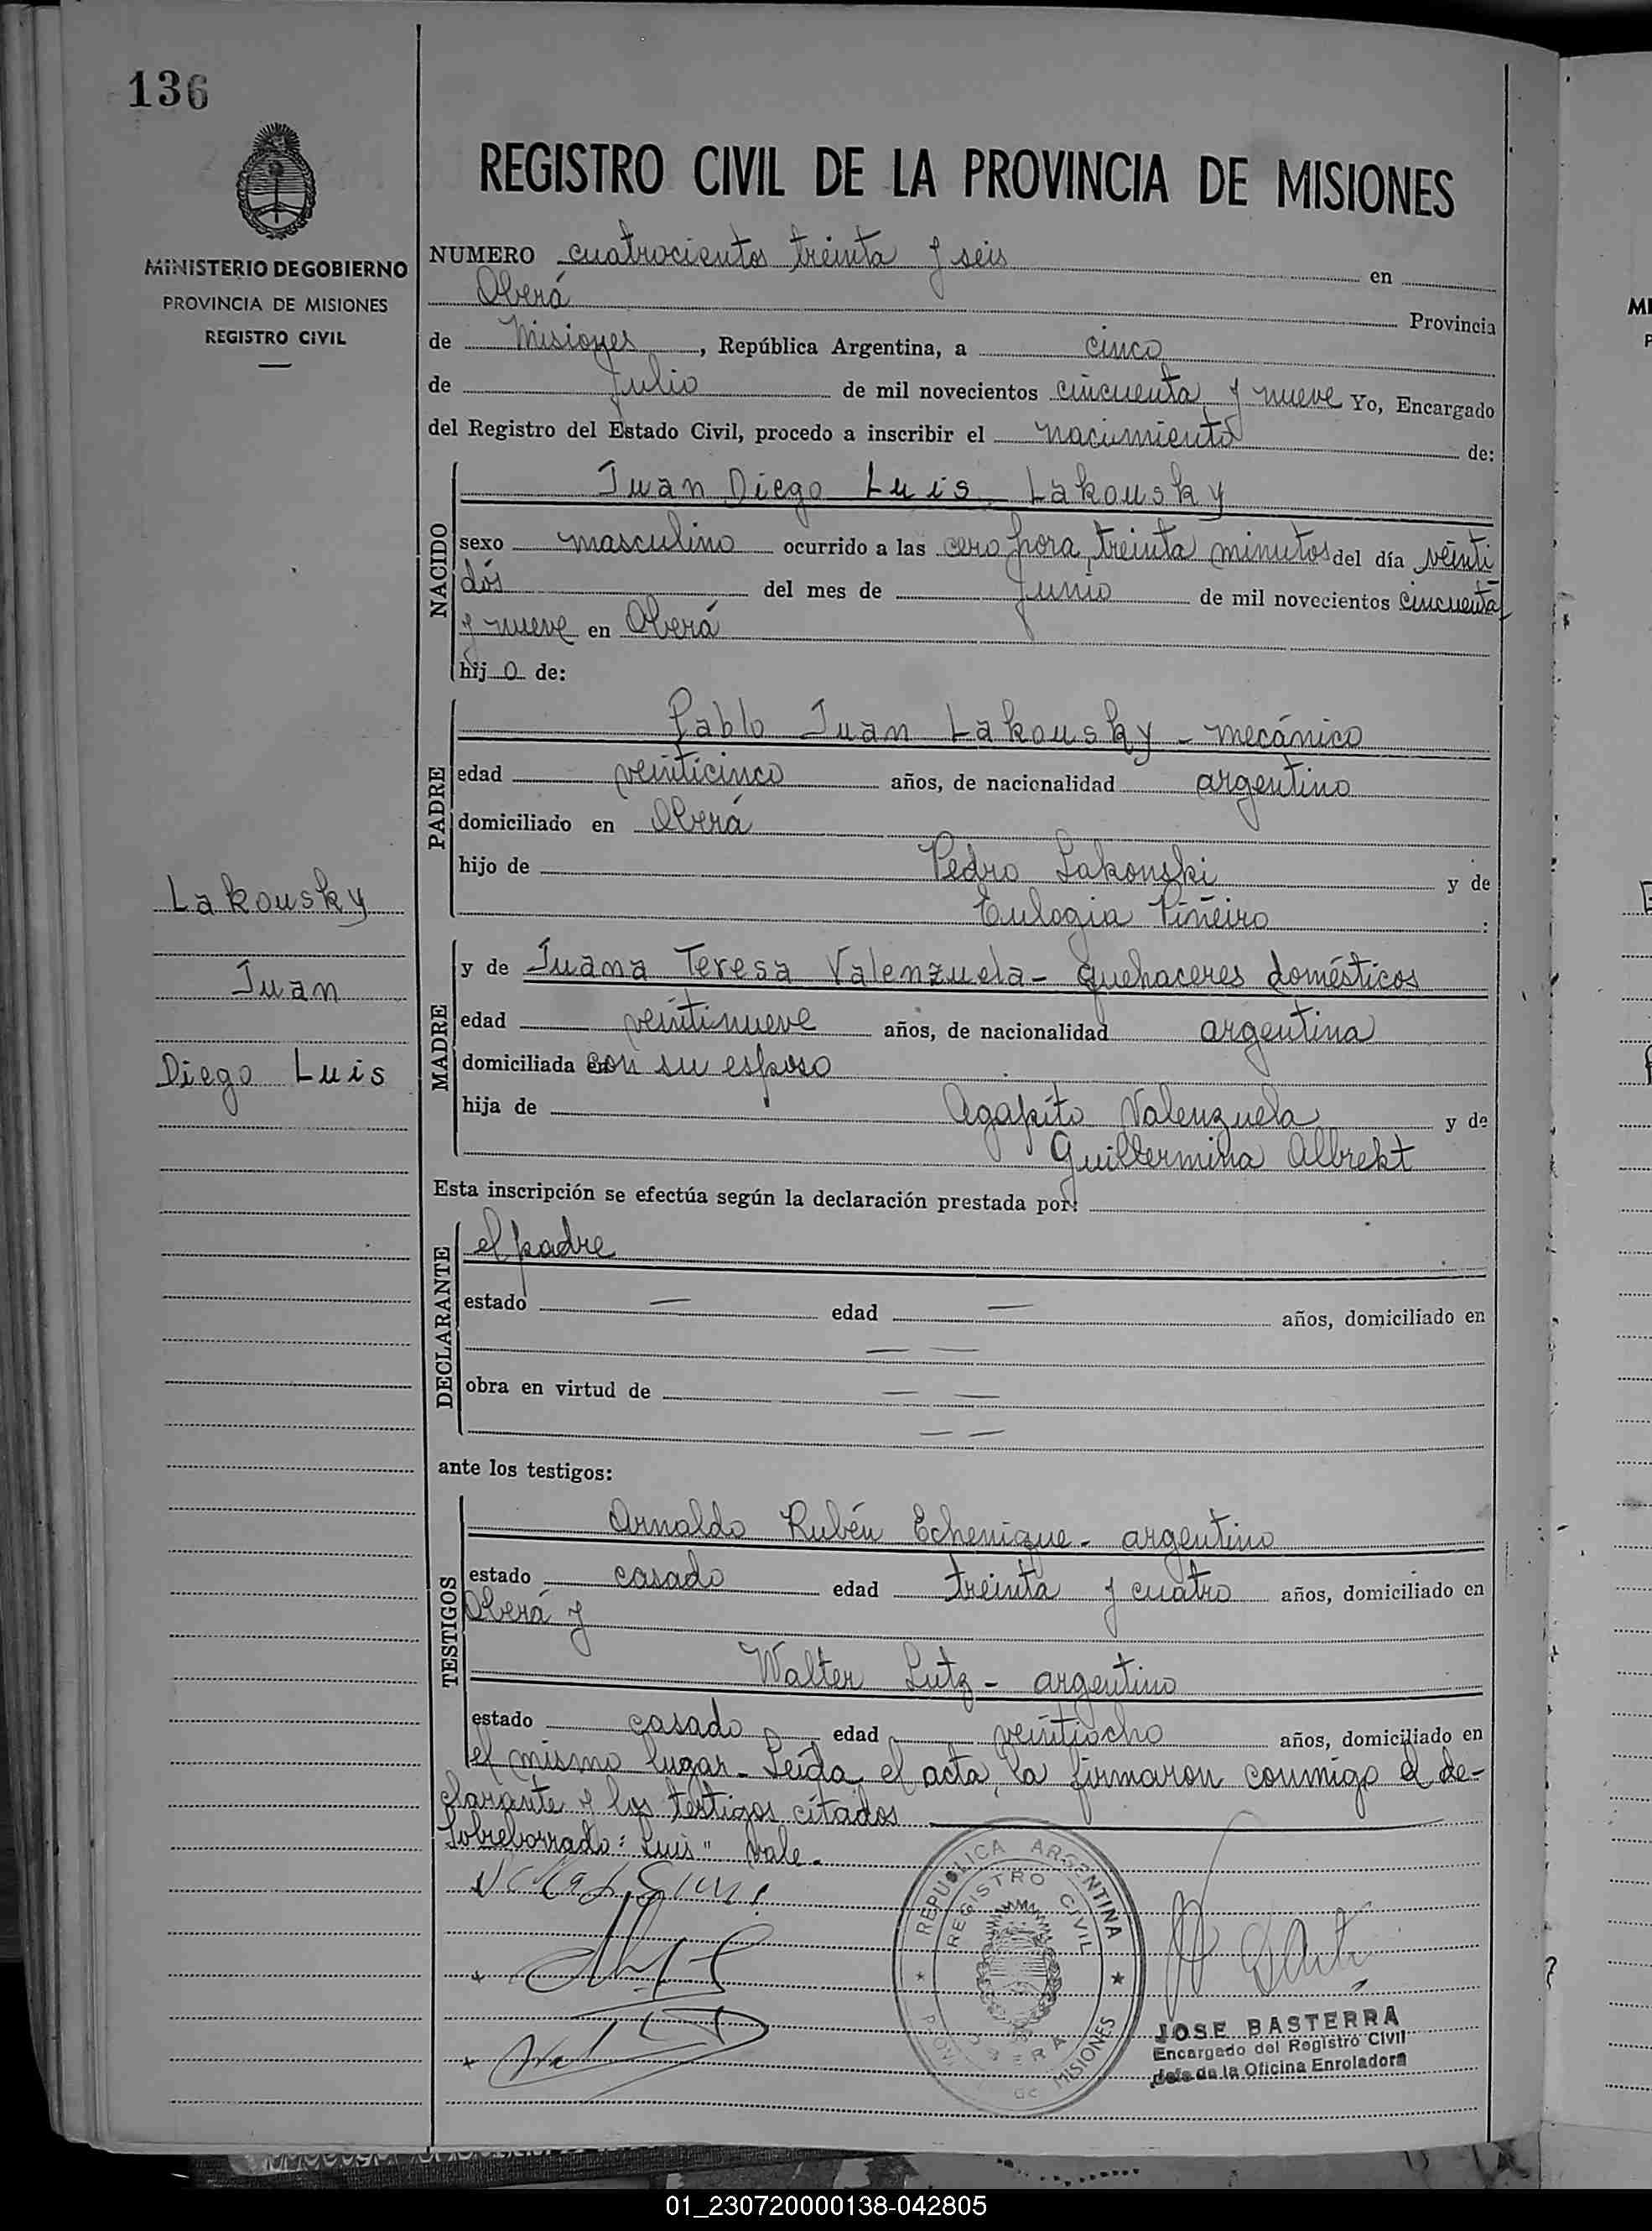 136
MINISTERIO DE GOBIERNO
PROVINCIA DE MISIONES
REGISTRO CIVIL
REGISTRO CIVIL DE LA PROVINCIA DE MISIONES
NUMERO cuatrocientos treinta y seis en
Oberá Provincia
de Misiones, República Argentina, a cinco
de Julio de mil novecientos cincuenta y nueve Yo, Encargado
del Registro del Estado Civil, procedo a inscribir el nacimiento de:
NACIDO
Juan Diego Luis Lakousky
sexo masculino ocurrido a las cero hora treinta minutos del día veinti
dós del mes de Junio de mil novecientos cincuenta
y nueve en Oberá
hij o de:
PADRE
Pablo Juan Lakousky - mecánico
edad veinticinco años, de nacionalidad argentino
domiciliado en Oberá
hijo de Pedro Lakouski y de
Eulogia Piñeiro :
Lakousky
Juan
Diego Luis
MADRE
y de Juana Teresa Valenzuela - quehaceres domésticos
edad veintinueve años, de nacionalidad argentina
domiciliada con su esposo
hija de Agapito Valenzuela y de
Guillermina Albrekt
Esta inscripción se efectúa según la declaración prestada por:
DECLARANTE
el padre
estado — edad — años, domiciliado en
— —
obra en virtud de — —
— —
ante los testigos:
TESTIGOS
Arnoldo Rubén Echenique - argentino
estado casado edad treinta y cuatro años, domiciliado en
Oberá y
Walter Lutz - argentino
estado casado edad veintiocho años, domiciliado en
el mismo lugar - Leída el acta, la firmaron conmigo el de-
clarante y los testigos citados
Sobreborrado: Luis" Vale -
REPUBLICA ARGENTINA
REGISTRO CIVIL
OBERA
MISIONES
JOSE BASTERRA
Encargado del Registro Civil
Jefe de la Oficina Enroladora
01_230720000138-042805